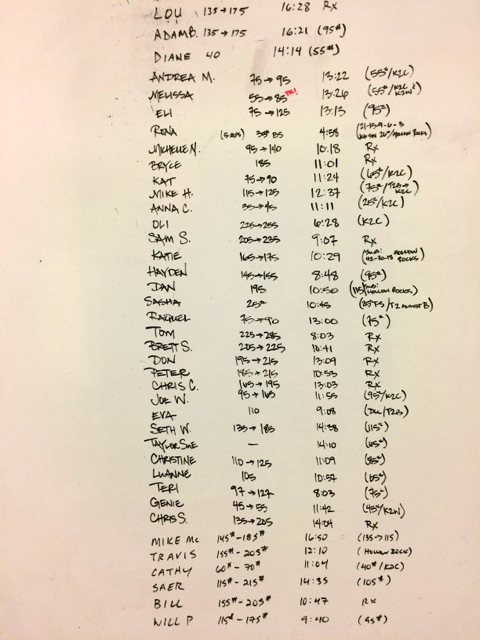 LOU 135→175 16:28 RX
ADAM B. 135→175 16:21 (95#)
DIANE 40 14:14 (55#)
ANDREA M. 75→95 13:22 (55#/K2C)
MELISSA 55→85 PR! 13:26 (55#/K2C
ELI 75→125 13:13 (95#)
RENA (5 REPS) 35# 85 4:58 (21-15-9-6-3
MICHELLE N. 95→140 10:18 RX
BRYCE 185 11:01 RX
KAT 75→90 11:24 (65#/K2C)
MIKE H. 115→125 12:37 (75#/T2B→K2C)
ANNA C. 35→45 11:11 (25#/K2C)
OLI 225→255 6:28 (K2C)
SAM S. 205→235 9:07 RX
KATIE 165→175 10:29 (SUB: HOLLOW ROCKS
HAYDEN 145→155 8:48 (95#)
DAN 195 10:50 (115/SUB: HOLLOW ROCKS)
SASHA 25# 10:45
RAQUEL 75→90 13:00 (75#)
TOM 225→285 8:03 RX
BRETT S. 205→225 10:41 RX
DON 195→215 13:09 RX
PETER 185→215 10:53 RX
CHRIS C. 165→195 13:03 RX
JOE W. 95→165 11:55 (95#/K2C)
EVA 110 9:08 (DU/T2B)
SETH W. 135→185 14:38 (115#)
TAYLOR SUE — 14:10 (65#)
CHRISTINE 110→125 11:09 (85#)
LUANNE 105 10:57 (65#)
TERI 97→127 8:03 (75#)
GENIE 45→55 11:42 (45#/K2N)
CHRIS S. 135→205 14:04 RX
MIKE MC 145#-185# 16:50 (135→115)
TRAVIS 155#-205# 12:10 (HOLLOW ROCK)
CATHY 60#-70# 11:04 (40#/K2C)
SAER 115#-215# 14:35 (105#)
BILL 155#-205# 10:47 RX
WILL P 115#-175# 9:40 (95#)